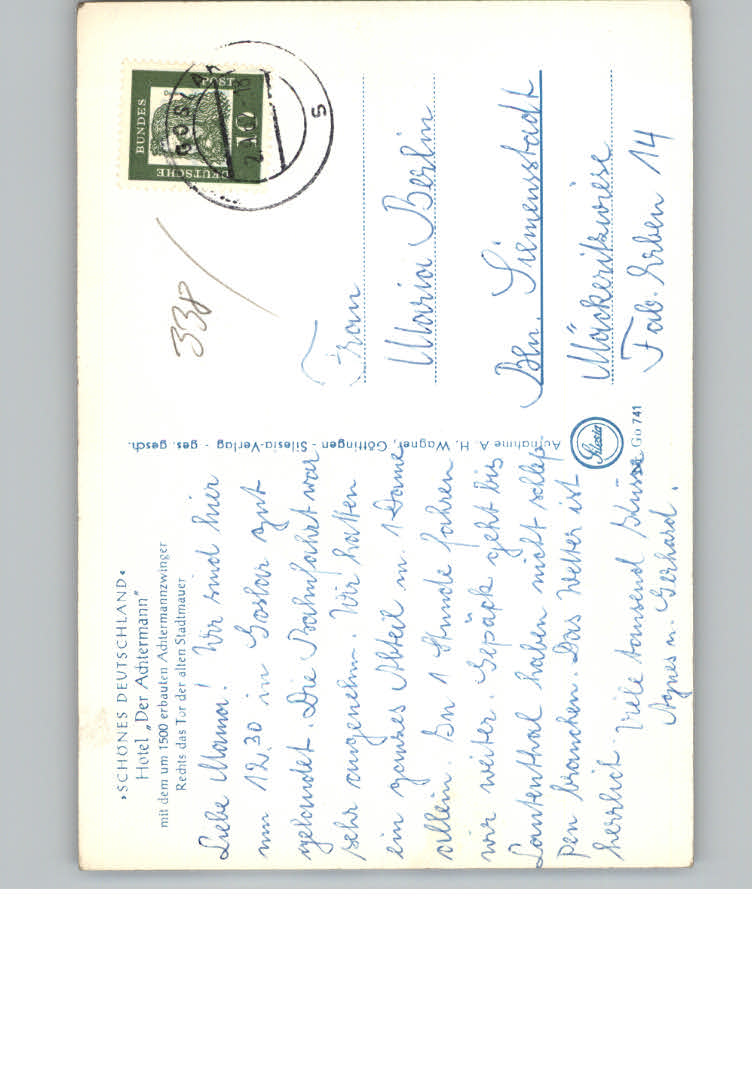 »SCHÖNES DEUTSCHLAND«
Hotel „Der Achtermann"
mit dem um 1500 erbauten Achtermannzwinger
Rechts das Tor der alten Stadtmauer
Liebe Mama! Wir sind hier
um 12.30 in Goslar gut
gelandet. Die Bahnfahrt war
sehr angenehm. Wir hatten
ein ganzes Abteil m. 1 Dame
allein. In 1 Stunde fahren
wir weiter. Gepäck geht bis
Lautenthal haben nicht schlep
pen brauchen. Das Wetter ist
herrlich. Viele tausend Küsse
Agnes u. Gerhard.
Aufnahme A. H. Wagner, Göttingen - Silesia-Verlag - ges. gesch.
Silesia
Go 741
338
DEUTSCHE
BUNDES
POST
10
GOSLAR
2
-18
S
Frau
Maria Berlin
Bln. Siemensstadt
Mäckeritzwiese
Fab. Erben 14